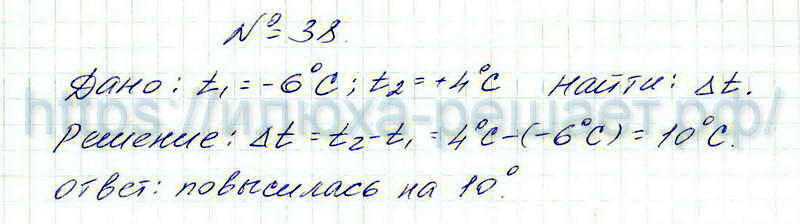 № 38.
Дано: t₁ = -6°C; t₂ = +4°C Найти: Δt.
https://илюха-решает.рф/
Решение: Δt = t₂ - t₁ = 4°C - (-6°C) = 10°C.
Ответ: повысилась на 10°